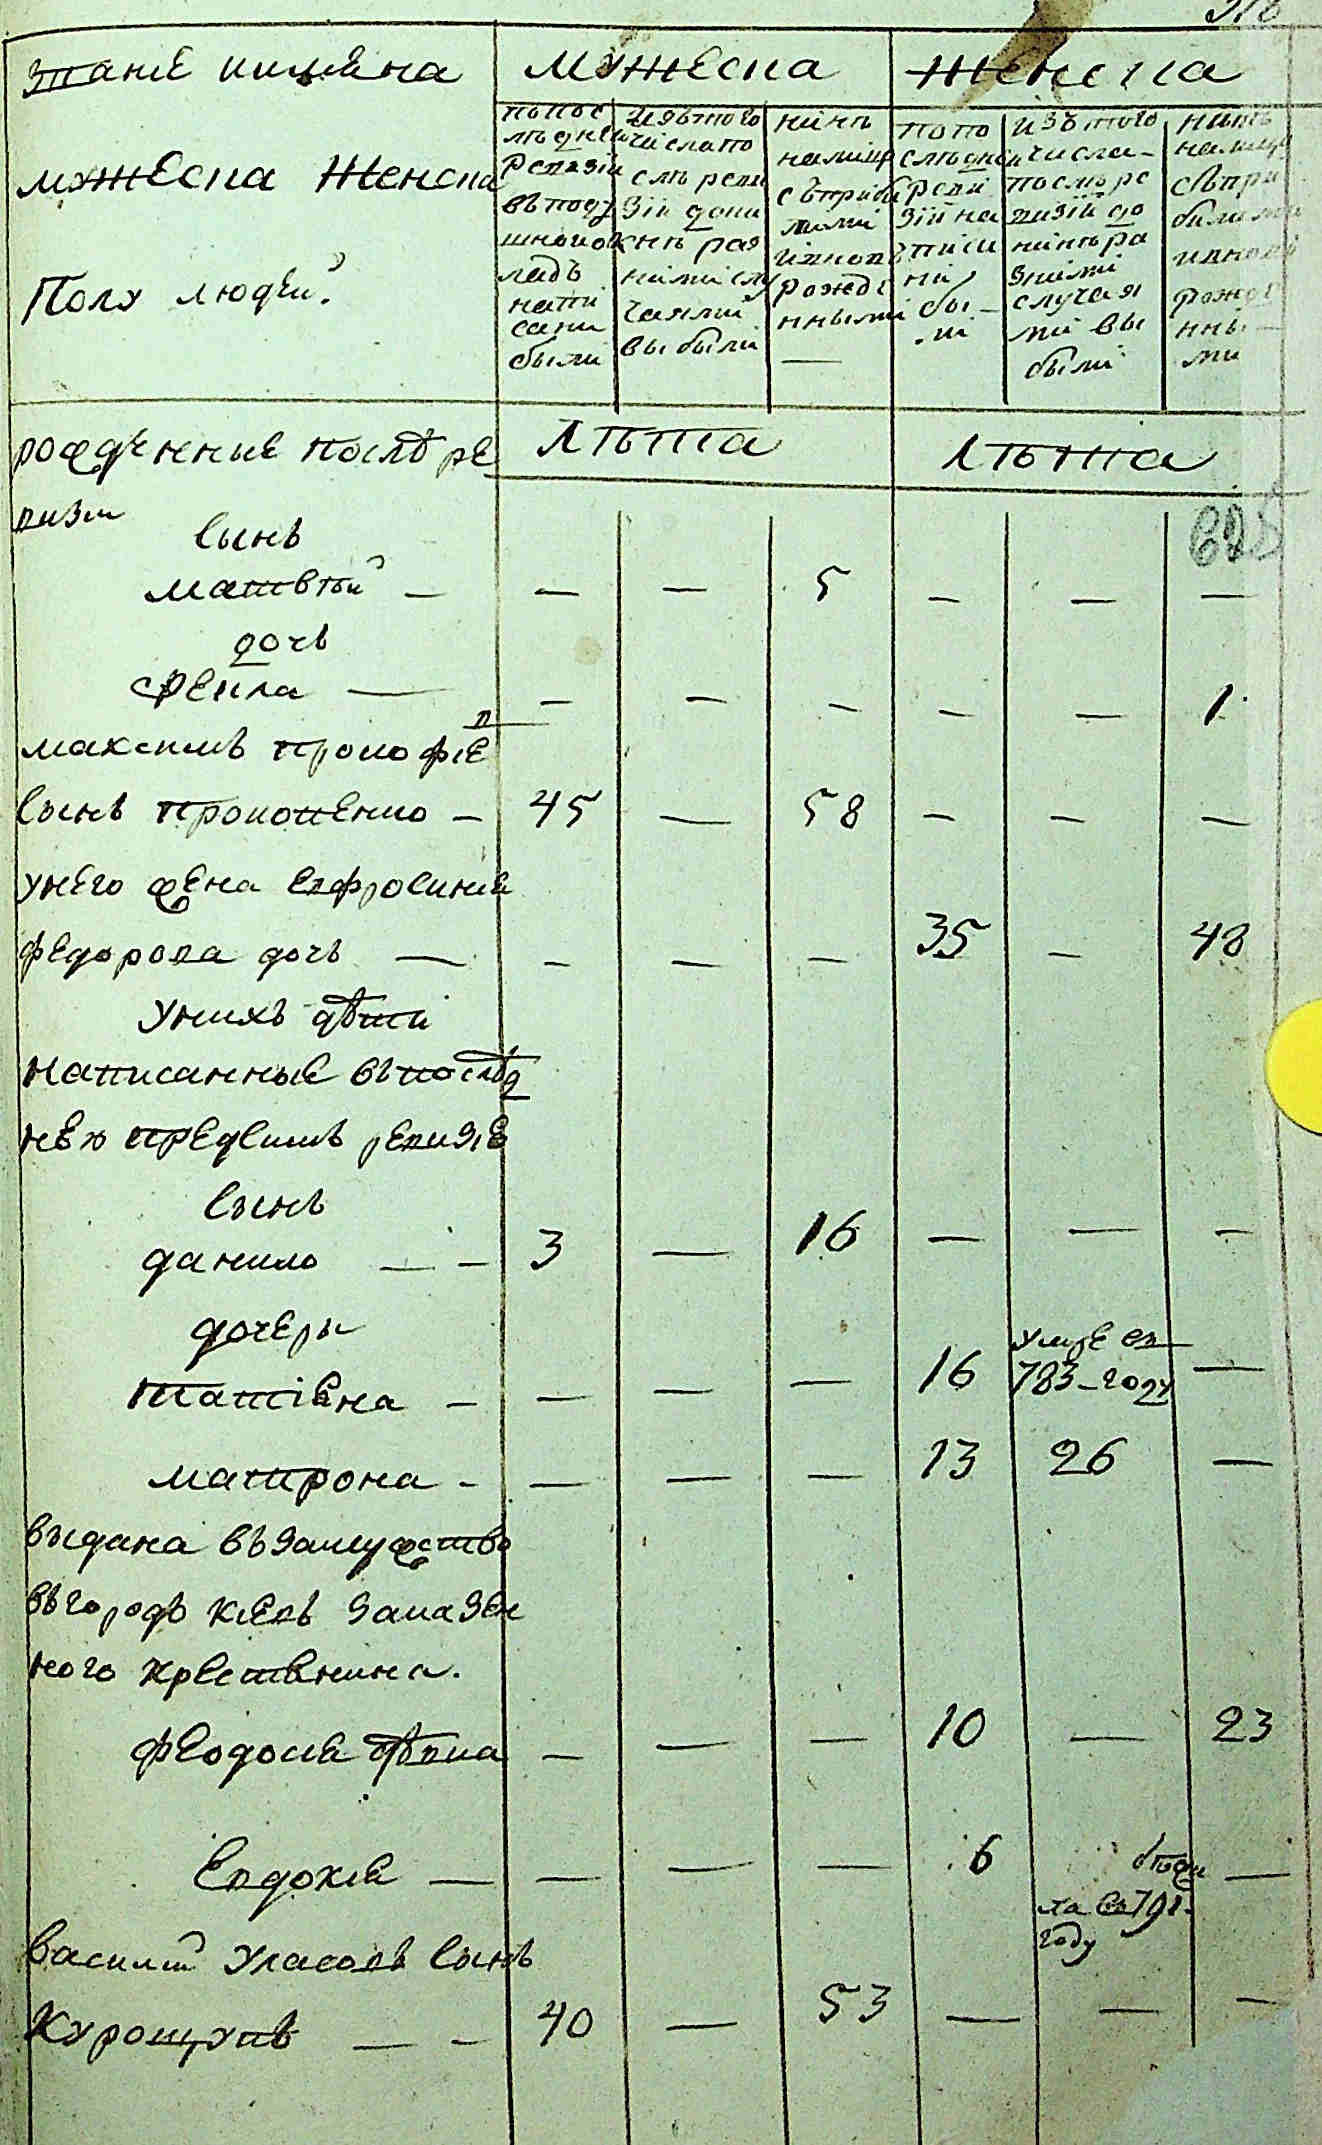 званіе иимѣна
мужеска женска
Полу людей.
мужеска
женска
попос
лѣдней
ревизіи
въподу
шномок
ладъ
напи
саны
были
изътого
числапо
слѣ реви
зіи доны
нѣ раз
ними слу
чаями
выбыли
нинѣ
налице
съприбы
лыми
ивновь
рожде
нными
—
попо
слѣдней
реви
зіи на
писа
ны
бы
ли
изътого
числа
послѣ ре
визіи до
нынѣ ра
зними
случая
ми вы
были
нынѣ
налице
съпри
былыми
ивновь
рожде
нны
ми
рожденные послѣ ре
визи
Лѣта
лѣта
сынъ
матвѣй — — — 5 — — —
дочь
фекла — — — — — — 1
максимъ прокофіев
сынъ прокопенко — 45 — 58 — — —
унего жена евфросинія
федорова дочь — — — — 35 — 48
унихъ дѣти
написанные въпослѣд
ней предсимъ ревизіе
сынъ
данило — — 3 — 16 — — —
дочеры
татіяна — — — — 16 умре въ 783-году —
матрона — — — — 13 26 —
выдана въ замужство
вгородъ кіевъ заказен
ного крестянина.
феодосія дѣвка — — — 10 — 23
Евдокія — — — — 6 бѣжа
ла въ791.
году —
василій уласовъ сынъ
Курощупъ — — 40 — 53 — — —